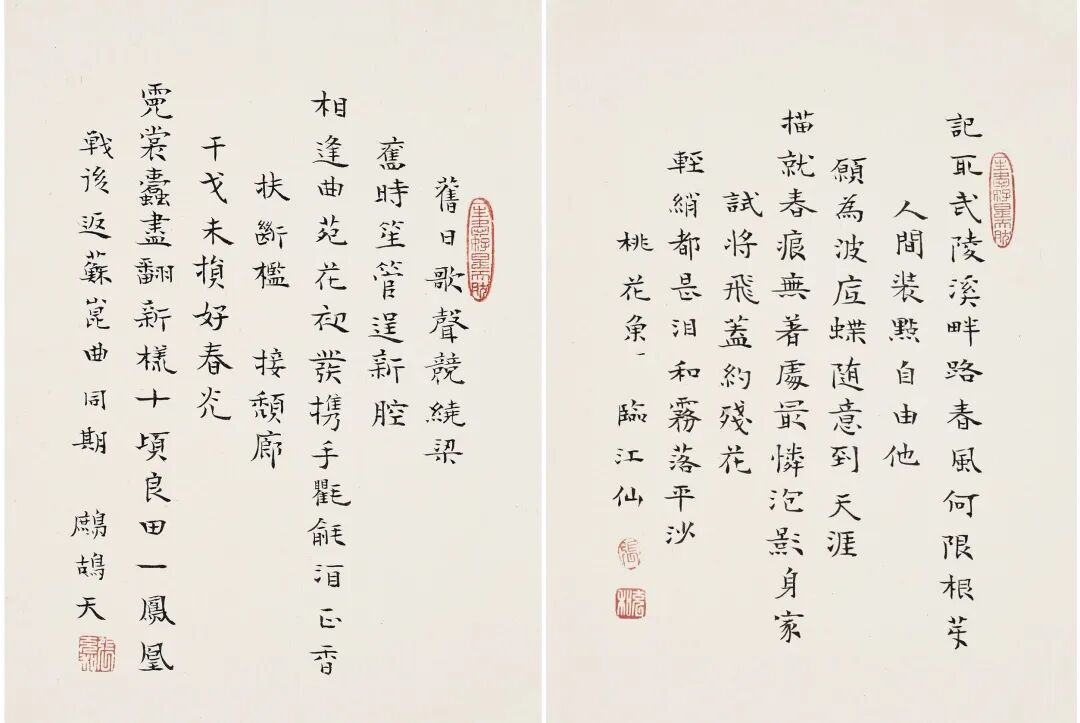 記取武陵溪畔路春風何限根芽
人間裝點自由他
願為波底蝶随意到天涯
描就春痕無著處最憐泡影身家
試將飛蓋約殘花
輕綃都是泪和霧落平沙
桃花魚一 臨江仙
舊日歌聲競繞梁
舊時笙管逞新腔
相逢曲苑花初發携手氍毹酒正香
扶斷檻 接頹廊
干戈未損好春光
霓裳蠹盡翻新樣十頃良田一鳳凰
戰後返蘇崑曲同期 鷓鴣天